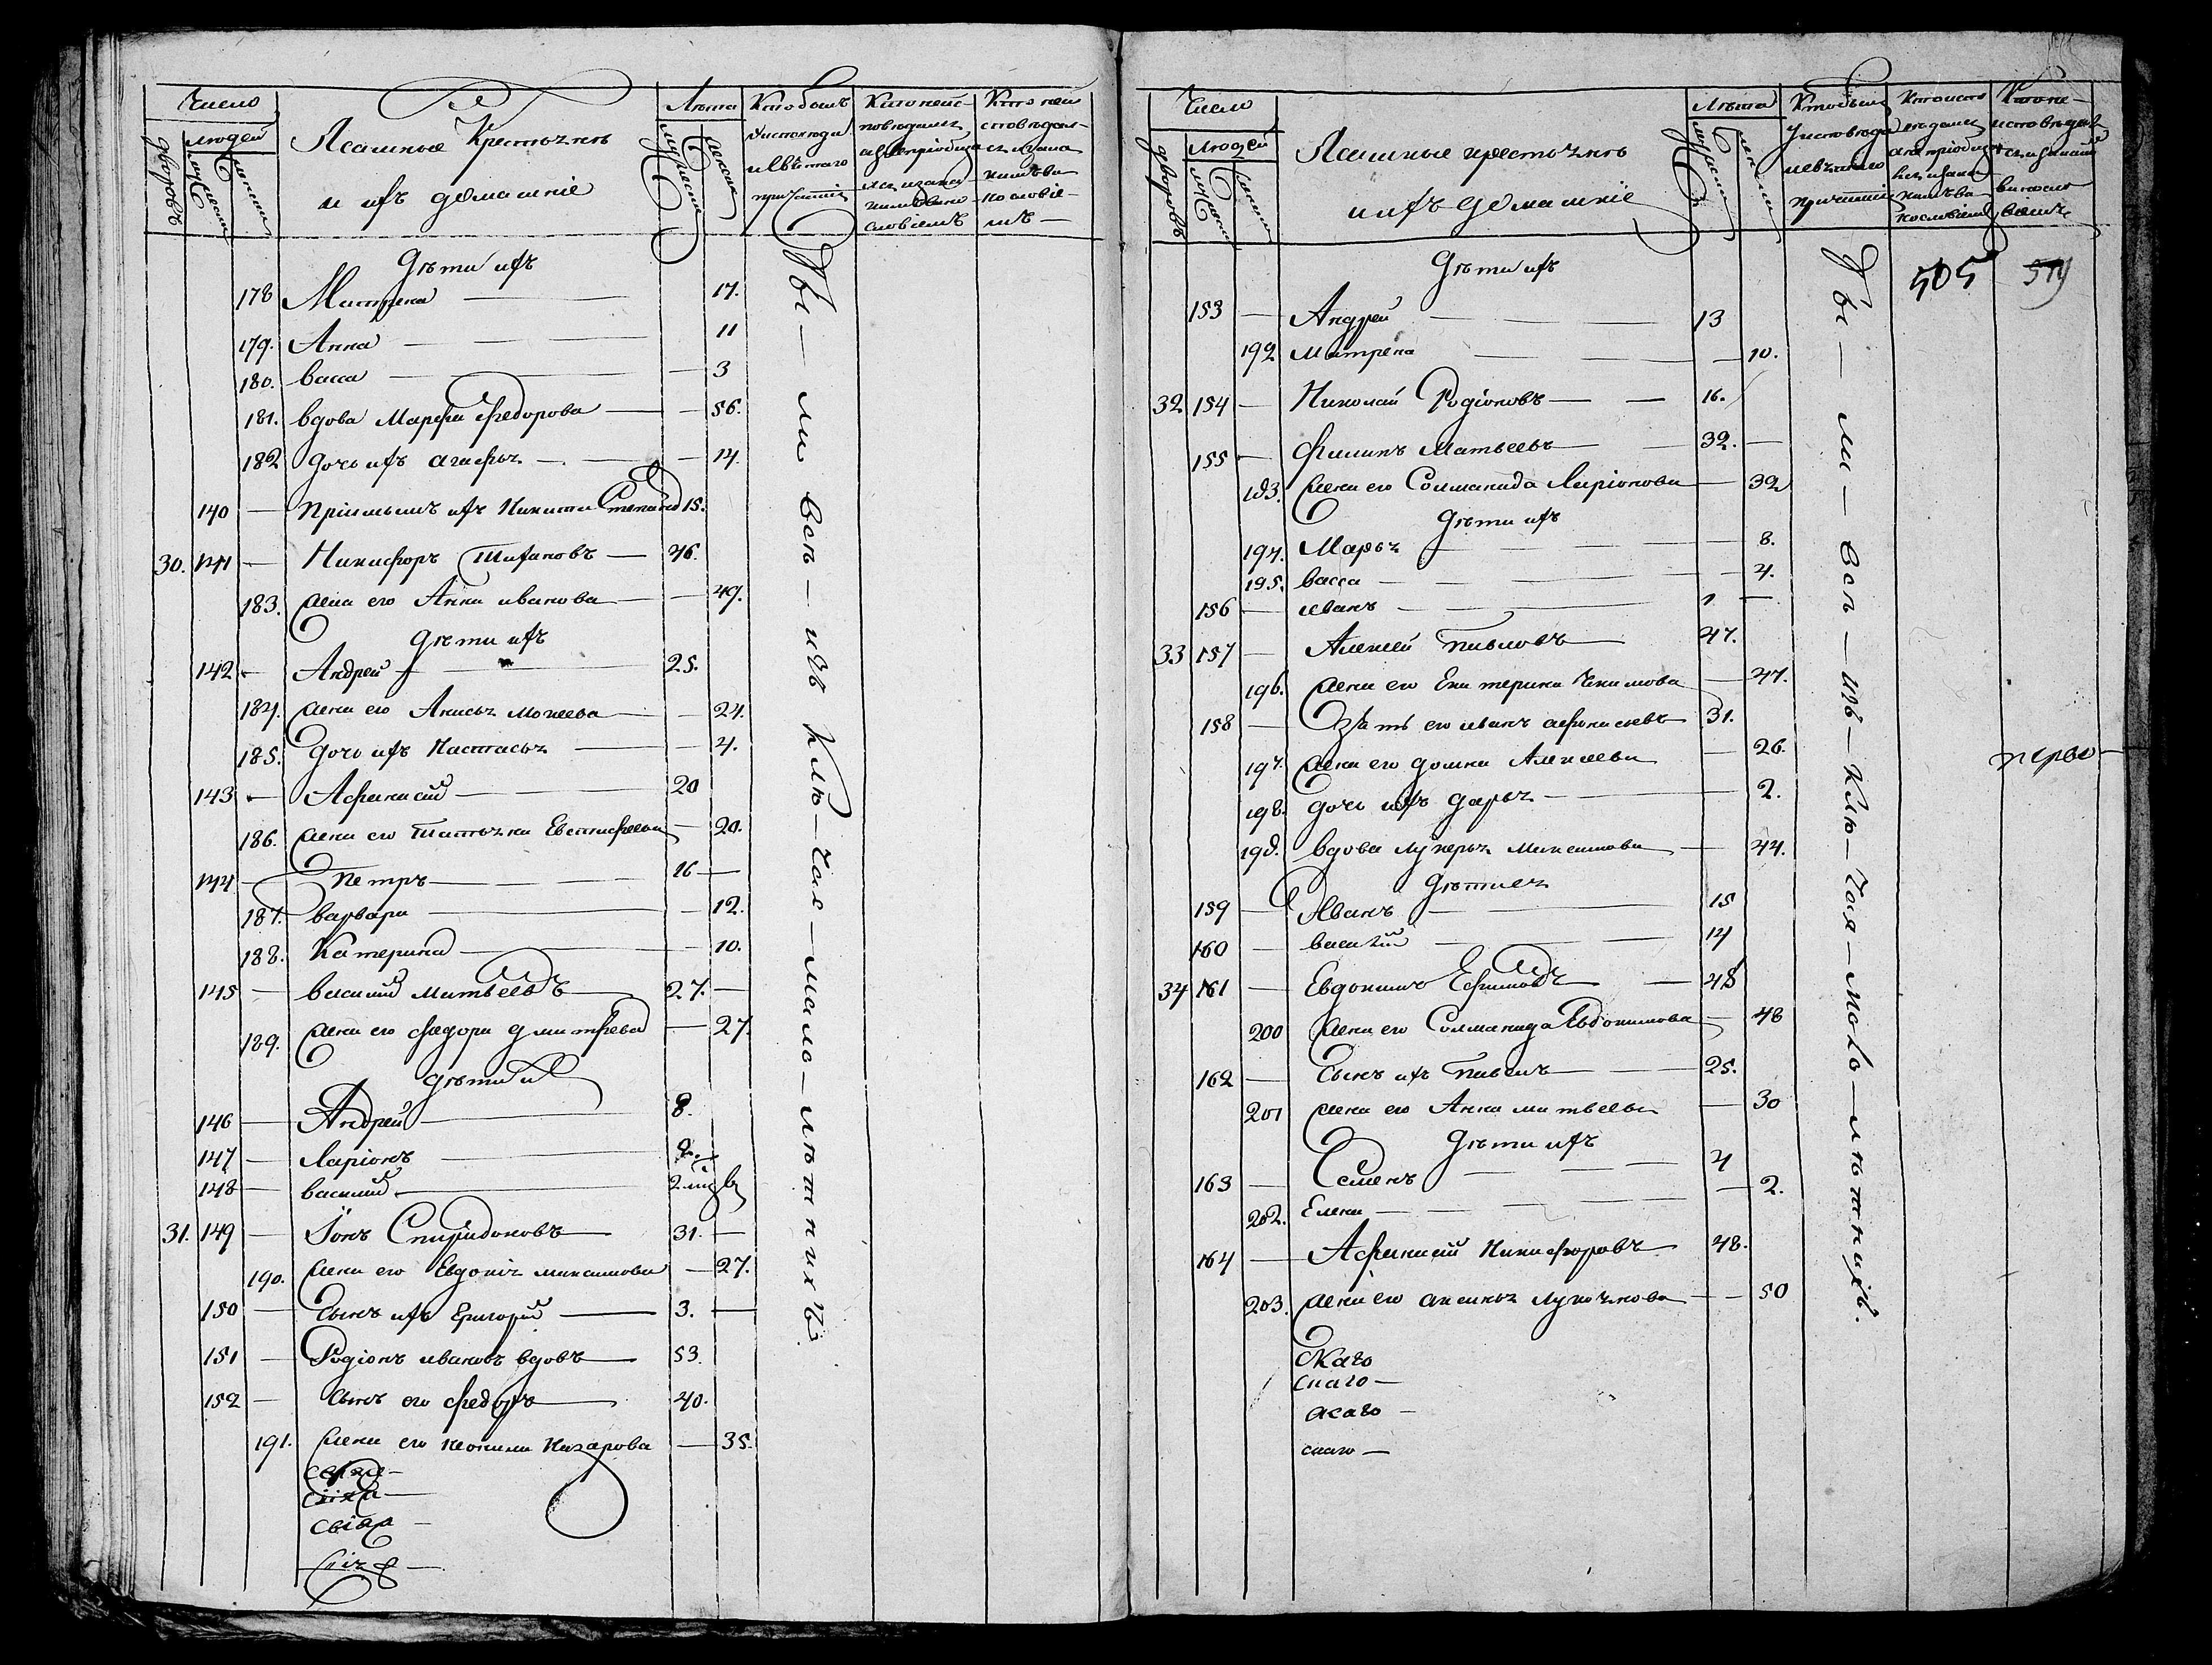 Число
Лѣта
Людей
дворовъ
Ясашные Крестьянѣ
и ихъ домашніе
Дѣти ихъ
178 Матрена — 17.
179. Анна — 11
180. васса — 3
181. вдова Марфа федорова — 56.
182 дочь ихъ агафья — 14.
140 — пріимышъ ихъ Никита Степановъ 15.
30. 141 — Никифоръ — 46.
183. жена его Анна иванова — 49.
дѣти ихъ
142 — Андрей — 25.
184. жена его Анисья мокеева — 24.
185. дочь ихъ Настасья — 4.
143 — Афанасий — 20
186. жена его Татьяна Евстифеева — 20.
144 — Петръ — 16 —
187. варвара — 12.
188. Катерина — 10.
145 — василий матвеевъ 27. —
189. жена его федора дмитрева — 27.
дѣти и
146 — Андрей — 8.
147 — Ларіонъ — 2. —
148 — василий —
31. 149 — Іонъ Спиридоновъ — 31. —
190. жена его Евдокія максимова — 27.
150 — сынъ ихъ Григорий — 3. —
151 — Родіонъ ивановъ вдовъ — 53.
152 — сынъ его федоръ — 40.
191. жена его неонила Назарова — 35.
Бы — ли всѣ — изъ Клю — чая — мало — лѣтнихъ.
Число
Лѣта
Людей
дворовъ
Ясашные крестьянѣ
и ихъ домашніе
505
519
Дѣти ихъ
153 — Андрей — 13
192 Матрена — 10.
32 154 — Николай Родіоновъ — 16.
155 — филипъ Матвеевъ — 32. —
193. жена его Соломанида Ларіонова — 32
дѣти ихъ
194. Марья — 8.
195. васса — 4.
156 — иванъ — 1 —
33 157 — Алексей павловъ — 47.
196. жена его Екатерина Екимова — 47.
158 — зять его иванъ афонасьевъ — 31.
197. жена его домна Алексеева — 26.
198. дочь ихъ дарья — 2.
199. вдова лукерья Максимова — 44.
дѣти ея
159 — Иванъ — 15
160 — василий — 14
34 161 — Евдокимъ Ефимовъ — 48
200 жена его Соломанида Евдокимова — 48
162 — сынъ ихъ Павелъ — 25.
201 жена его Анна матвеева — 30
Дѣти ихъ
163 — Семенъ — 4
202. Елена — 2.
164 — Афанасий Никифоровъ — 48.
203. жена его аксинья Лукоянова — 50
Бы — ли — всѣ — изъ — Клю — чая — мало — лѣтнихъ.